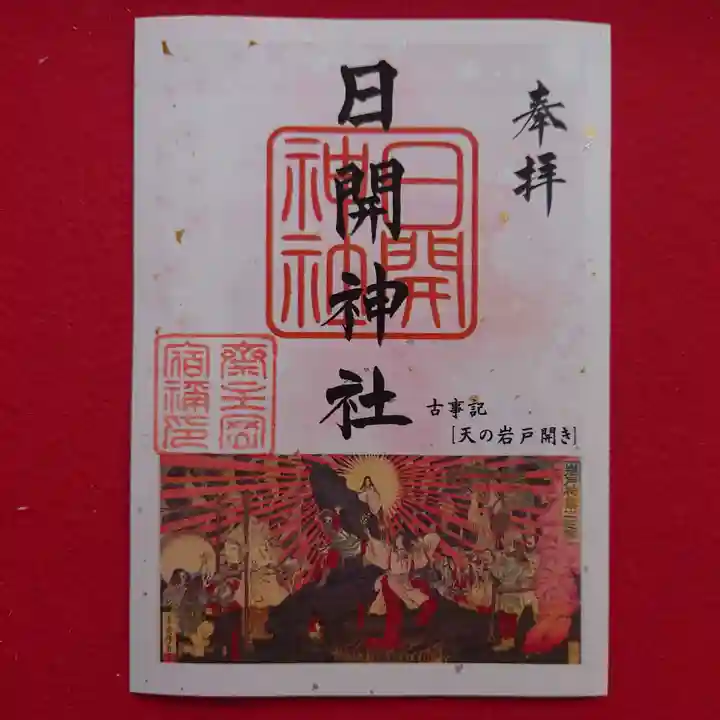 奉拝
日開神社
日開
神社
古事記
[天の岩戸開き]